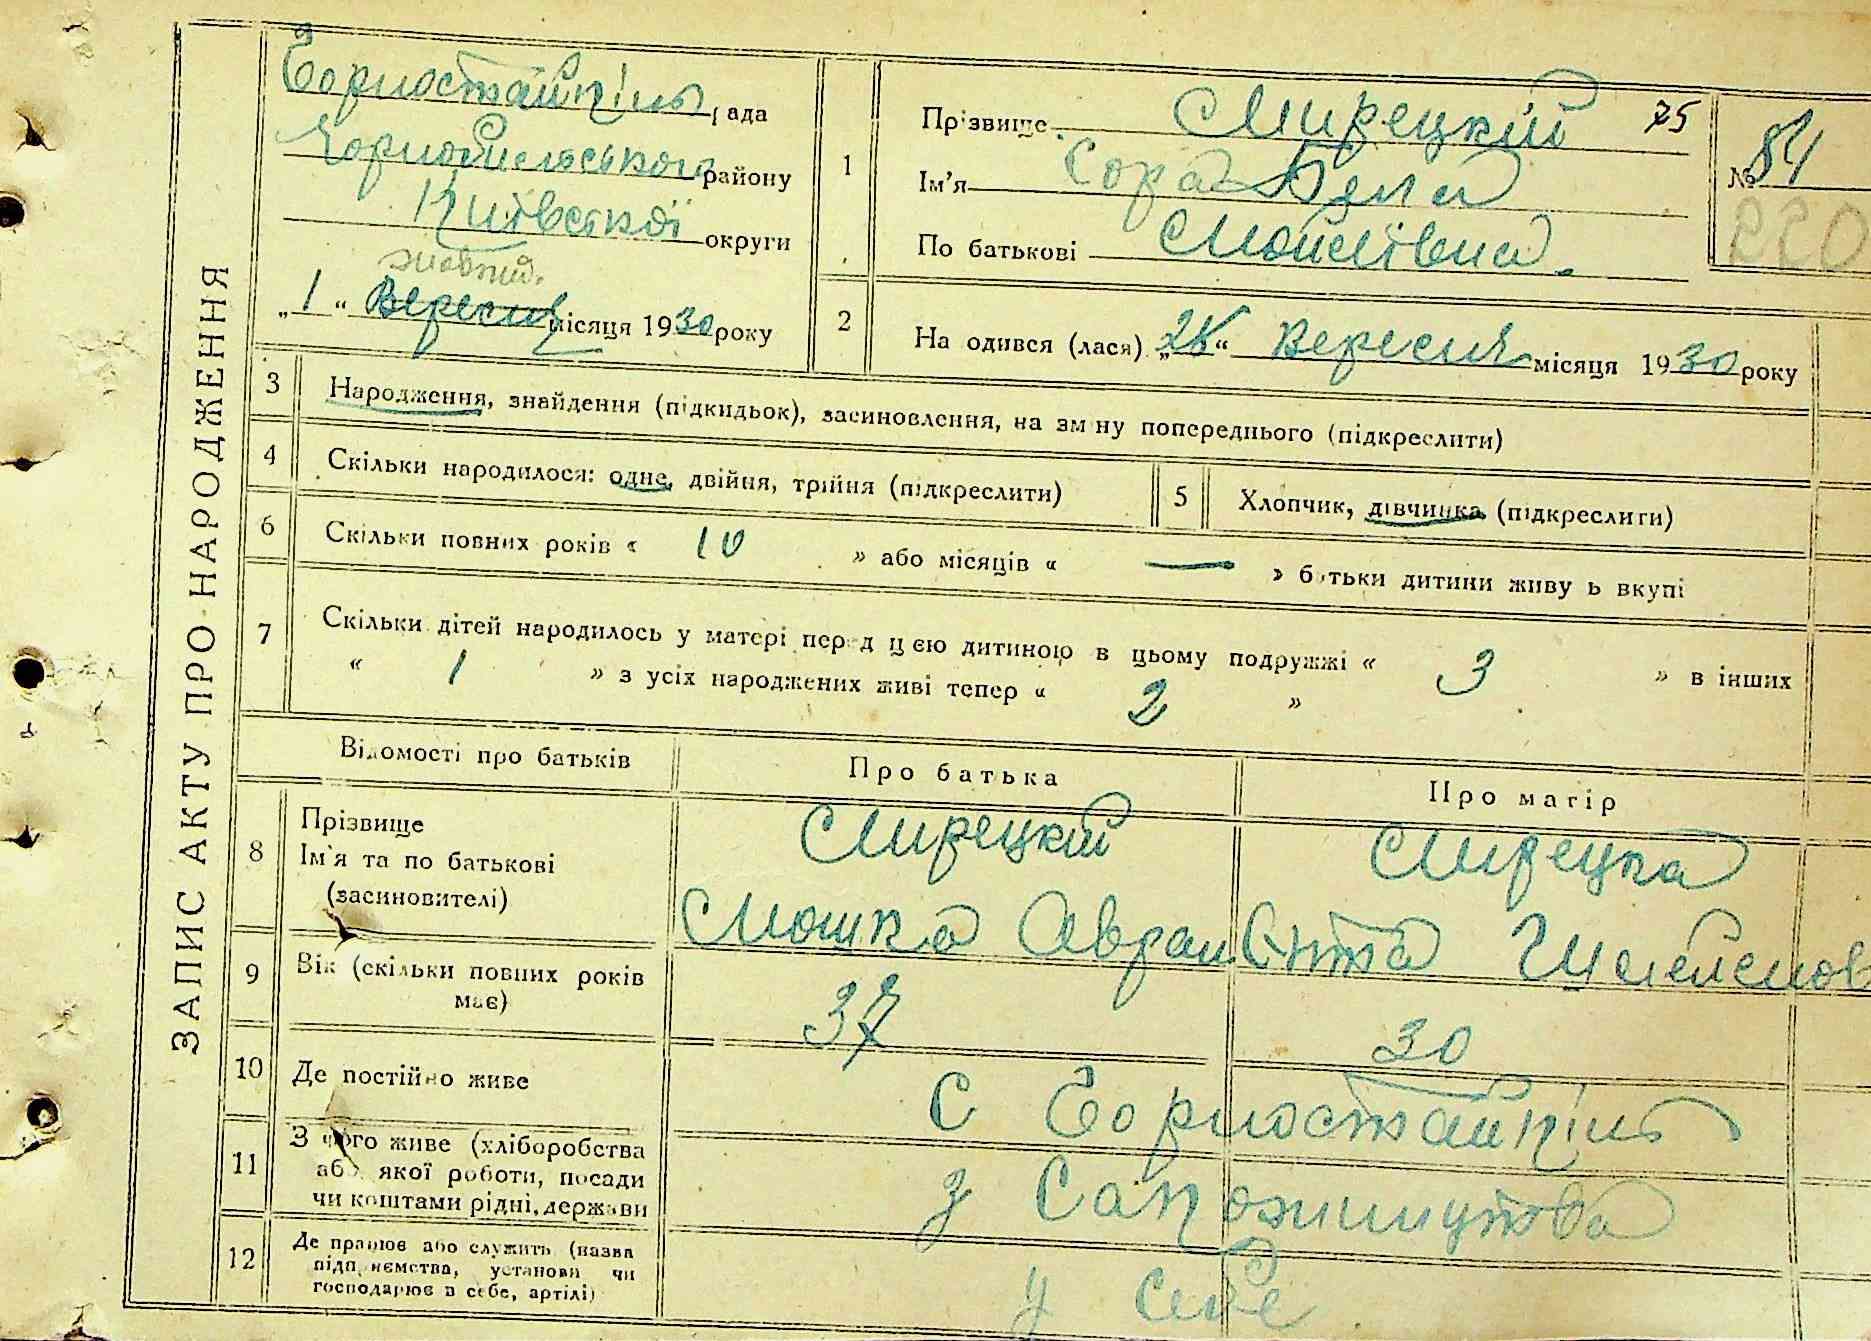 ЗАПИС АКТУ ПРО НАРОДЖЕННЯ
Горностайпіль рада
Чорнобильського району
Київської округи
жовтня
„1“ Вересня місяця 1930 року
1
Прізвище Мирецкий 75
Ім'я Сора Бела
По батькові Мойсіївна
№ 84
220
2
На одився (лася) „28“ Вересня місяця 1930 року
3 Народження, знайдення (підкидьок), засиновлення, на зміну попереднього (підкреслити)
4 Скільки народилося: одне, двійня, трійня (підкреслити)
5 Хлопчик, дівчинка (підкреслити)
6 Скільки повних років « 10 » або місяців « — » батьки дитини живу ь вкупі
7 Скільки дітей народилось у матері перед цією дитиною в цьому подружжі « 3 » в інших
« 1 » з усіх народжених живі тепер « 2 »
Відомості про батьків
Про батька
Про матір
8 Прізвище
Ім'я та по батькові
(засиновителі)
Мирецкий
Мошко Аврам
Мирецка
9 Вік (скільки повних років
має)
37
30
10 Де постійно живе
с Горностайпіль
11 З чого живе (хліборобства
або якої роботи, посади
чи коштами рідні, держави
з Сапожництва
12 Де працює або служить (назва
підприємства, установи чи
господарює в себе, артілі)
у себе